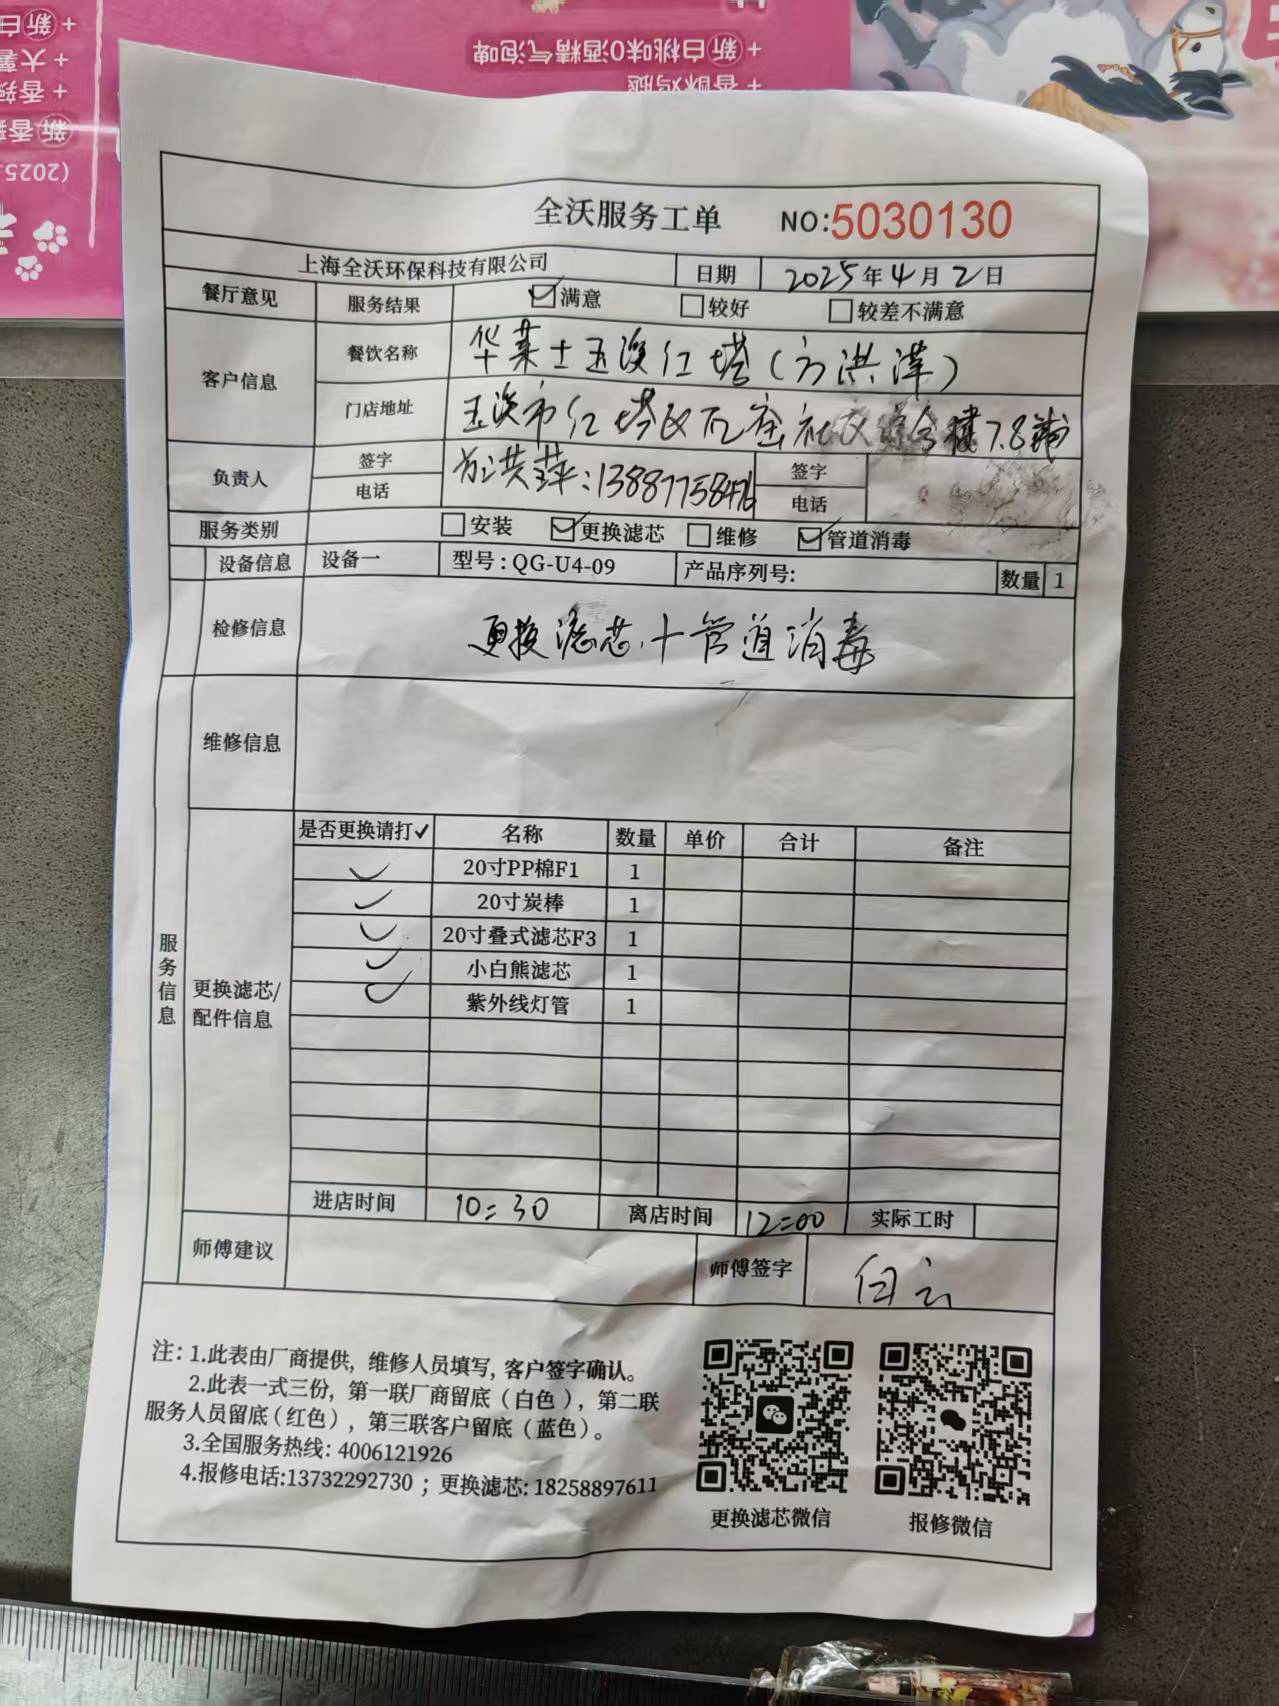 +新白桃味0酒精气泡啤
+香酥鸡腿
+新白
+大薯
+香辣
新香辣
(2025
全沃服务工单 NO:5030130
上海全沃环保科技有限公司 日期 2025年4月2日
餐厅意见 服务结果 ☑满意 □较好 □较差不满意
客户信息 餐饮名称 华莱士玉溪红塔(方洪萍)
门店地址 玉溪市红塔区瓦窑社区综合楼7.8铺
负责人 签字 方洪萍:13887758476 签字
电话 电话
服务类别 □安装 ☑更换滤芯 □维修 ☑管道消毒
设备信息 设备一 型号:QG-U4-09 产品序列号: 数量 1
检修信息 更换滤芯.+管道消毒
维修信息
服务信息
更换滤芯/
配件信息
是否更换请打✓ 名称 数量 单价 合计 备注
✓ 20寸PP棉F1 1
✓ 20寸炭棒 1
✓ 20寸叠式滤芯F3 1
✓ 小白熊滤芯 1
✓ 紫外线灯管 1
进店时间 10:30 离店时间 12:00 实际工时
师傅建议 师傅签字 白云
注: 1.此表由厂商提供, 维修人员填写, 客户签字确认。
2.此表一式三份, 第一联厂商留底(白色), 第二联
服务人员留底(红色), 第三联客户留底(蓝色)。
3.全国服务热线: 4006121926
4.报修电话:13732292730 ; 更换滤芯: 18258897611
更换滤芯微信 报修微信